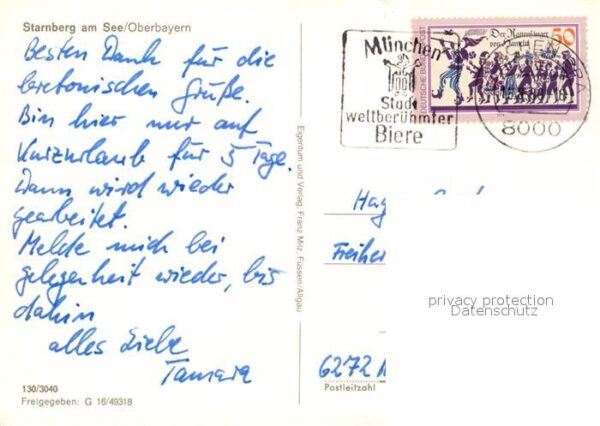 Starnberg am See/Oberbayern
Besten Dank für die
bretonischen Grüße.
Bin hier nur auf
Kurzurlaub für 5 Tage.
Dann wird wieder
gearbeitet.
Melde mich bei
gelegenheit wieder, bis
dahin
alles Liebe
Tamara
130/3040
Freigegeben: G 16/49318
Eigentum und Verlag, Franz Milz, Füssen/Allgäu
München
Stadt
weltberühmter
Biere
DEUTSCHE BUNDESPOST
Der Rattenfänger
von Hameln
50
8000
Hag
Freiher
privacy protection
Datenschutz
6272
Postleitzahl